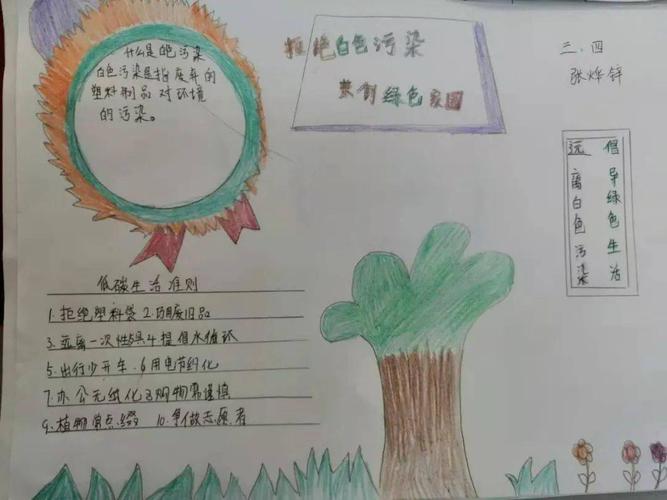 什么是白色污染
白色污染是指废弃的
塑料制品对环境
的污染。
拒绝白色污染
共创绿色家园
三.四
张烨锌
倡导绿色生活
远离白色污染
低碳生活准则
1.拒绝塑料袋 2.巧用废旧品
3.远离一次性餐具 4提倡水循环
5.出行少开车. 6用电节约化
7.办公无纸化 8购物需谨慎
9.植物常点缀 10.争做志愿者